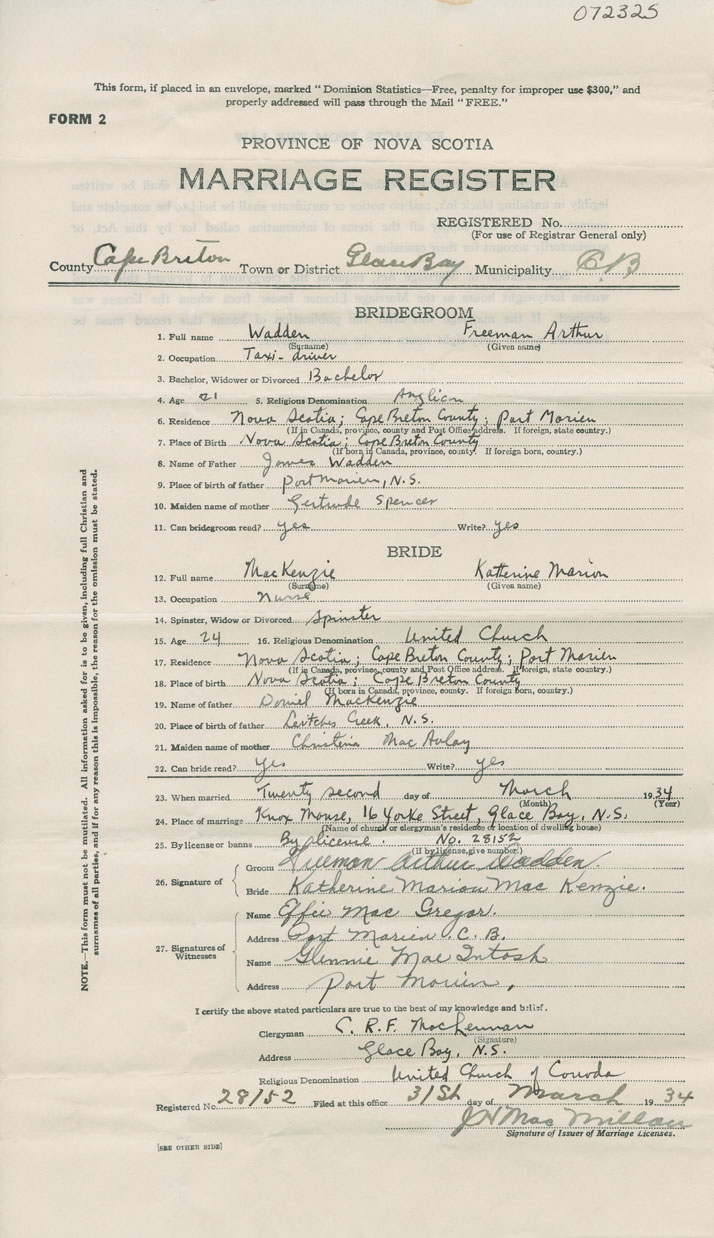 072325
This form, if placed in an envelope, marked "Dominion Statistics—Free, penalty for improper use $300," and
properly addressed will pass through the Mail "FREE."
FORM 2
PROVINCE OF NOVA SCOTIA
MARRIAGE REGISTER
REGISTERED No.
(For use of Registrar General only)
County Cape Breton Town or District Glace Bay Municipality C.B
BRIDEGROOM
1. Full name Wadden Freeman Arthur
(Surname) (Given name)
2. Occupation Taxi-driver
3. Bachelor, Widower or Divorced Bachelor
4. Age 21 5. Religious Denomination Anglican
6. Residence Nova Scotia; Cape Breton County; Port Morien
(If in Canada, province, county and Post Office address. If foreign, state country.)
7. Place of Birth Nova Scotia; Cape Breton County
(If born in Canada, province, county. If foreign born, country.)
8. Name of Father James Wadden
9. Place of birth of father Port Morien, N.S.
10. Maiden name of mother Gertrude Spencer
11. Can bridegroom read? yes Write? yes
BRIDE
12. Full name MacKenzie Katherine Marion
(Surname) (Given name)
13. Occupation Nurse
14. Spinster, Widow or Divorced Spinster
15. Age 24 16. Religious Denomination United Church
17. Residence Nova Scotia; Cape Breton County; Port Morien
(If in Canada, province, county and Post Office address. If foreign, state country.)
18. Place of birth Nova Scotia; Cape Breton County
(If born in Canada, province, county. If foreign born, country.)
19. Name of father Daniel MacKenzie
20. Place of birth of father Leitches Creek, N.S.
21. Maiden name of mother Christina MacAulay
22. Can bride read? yes Write? yes
23. When married Twenty second day of March 1934
(Month) (Year)
24. Place of marriage Knox Manse, 16 Yorke Street, Glace Bay, N.S.
(Name of church or clergyman's residence or location of dwelling house)
25. By license or banns By license. No. 28152
(If by license, give number)
26. Signature of
Groom Freeman Arthur Wadden.
Bride Katherine Marion MacKenzie.
27. Signatures of Witnesses
Name Effie MacGregor.
Address Port Morien C.B.
Name Glennie MacIntosh
Address Port Morien,
I certify the above stated particulars are true to the best of my knowledge and belief.
Clergyman C. R. F. MacLennan
(Signature)
Address Glace Bay, N.S.
Religious Denomination United Church of Canada
Registered No. 28152 Filed at this office 31st day of March 1934
J H MacMillan
Signature of Issuer of Marriage Licenses.
[SEE OTHER SIDE]
NOTE.—This form must not be mutilated. All information asked for is to be given, including full Christian and
surnames of all parties, and if for any reason this is impossible, the reason for the omission must be stated.